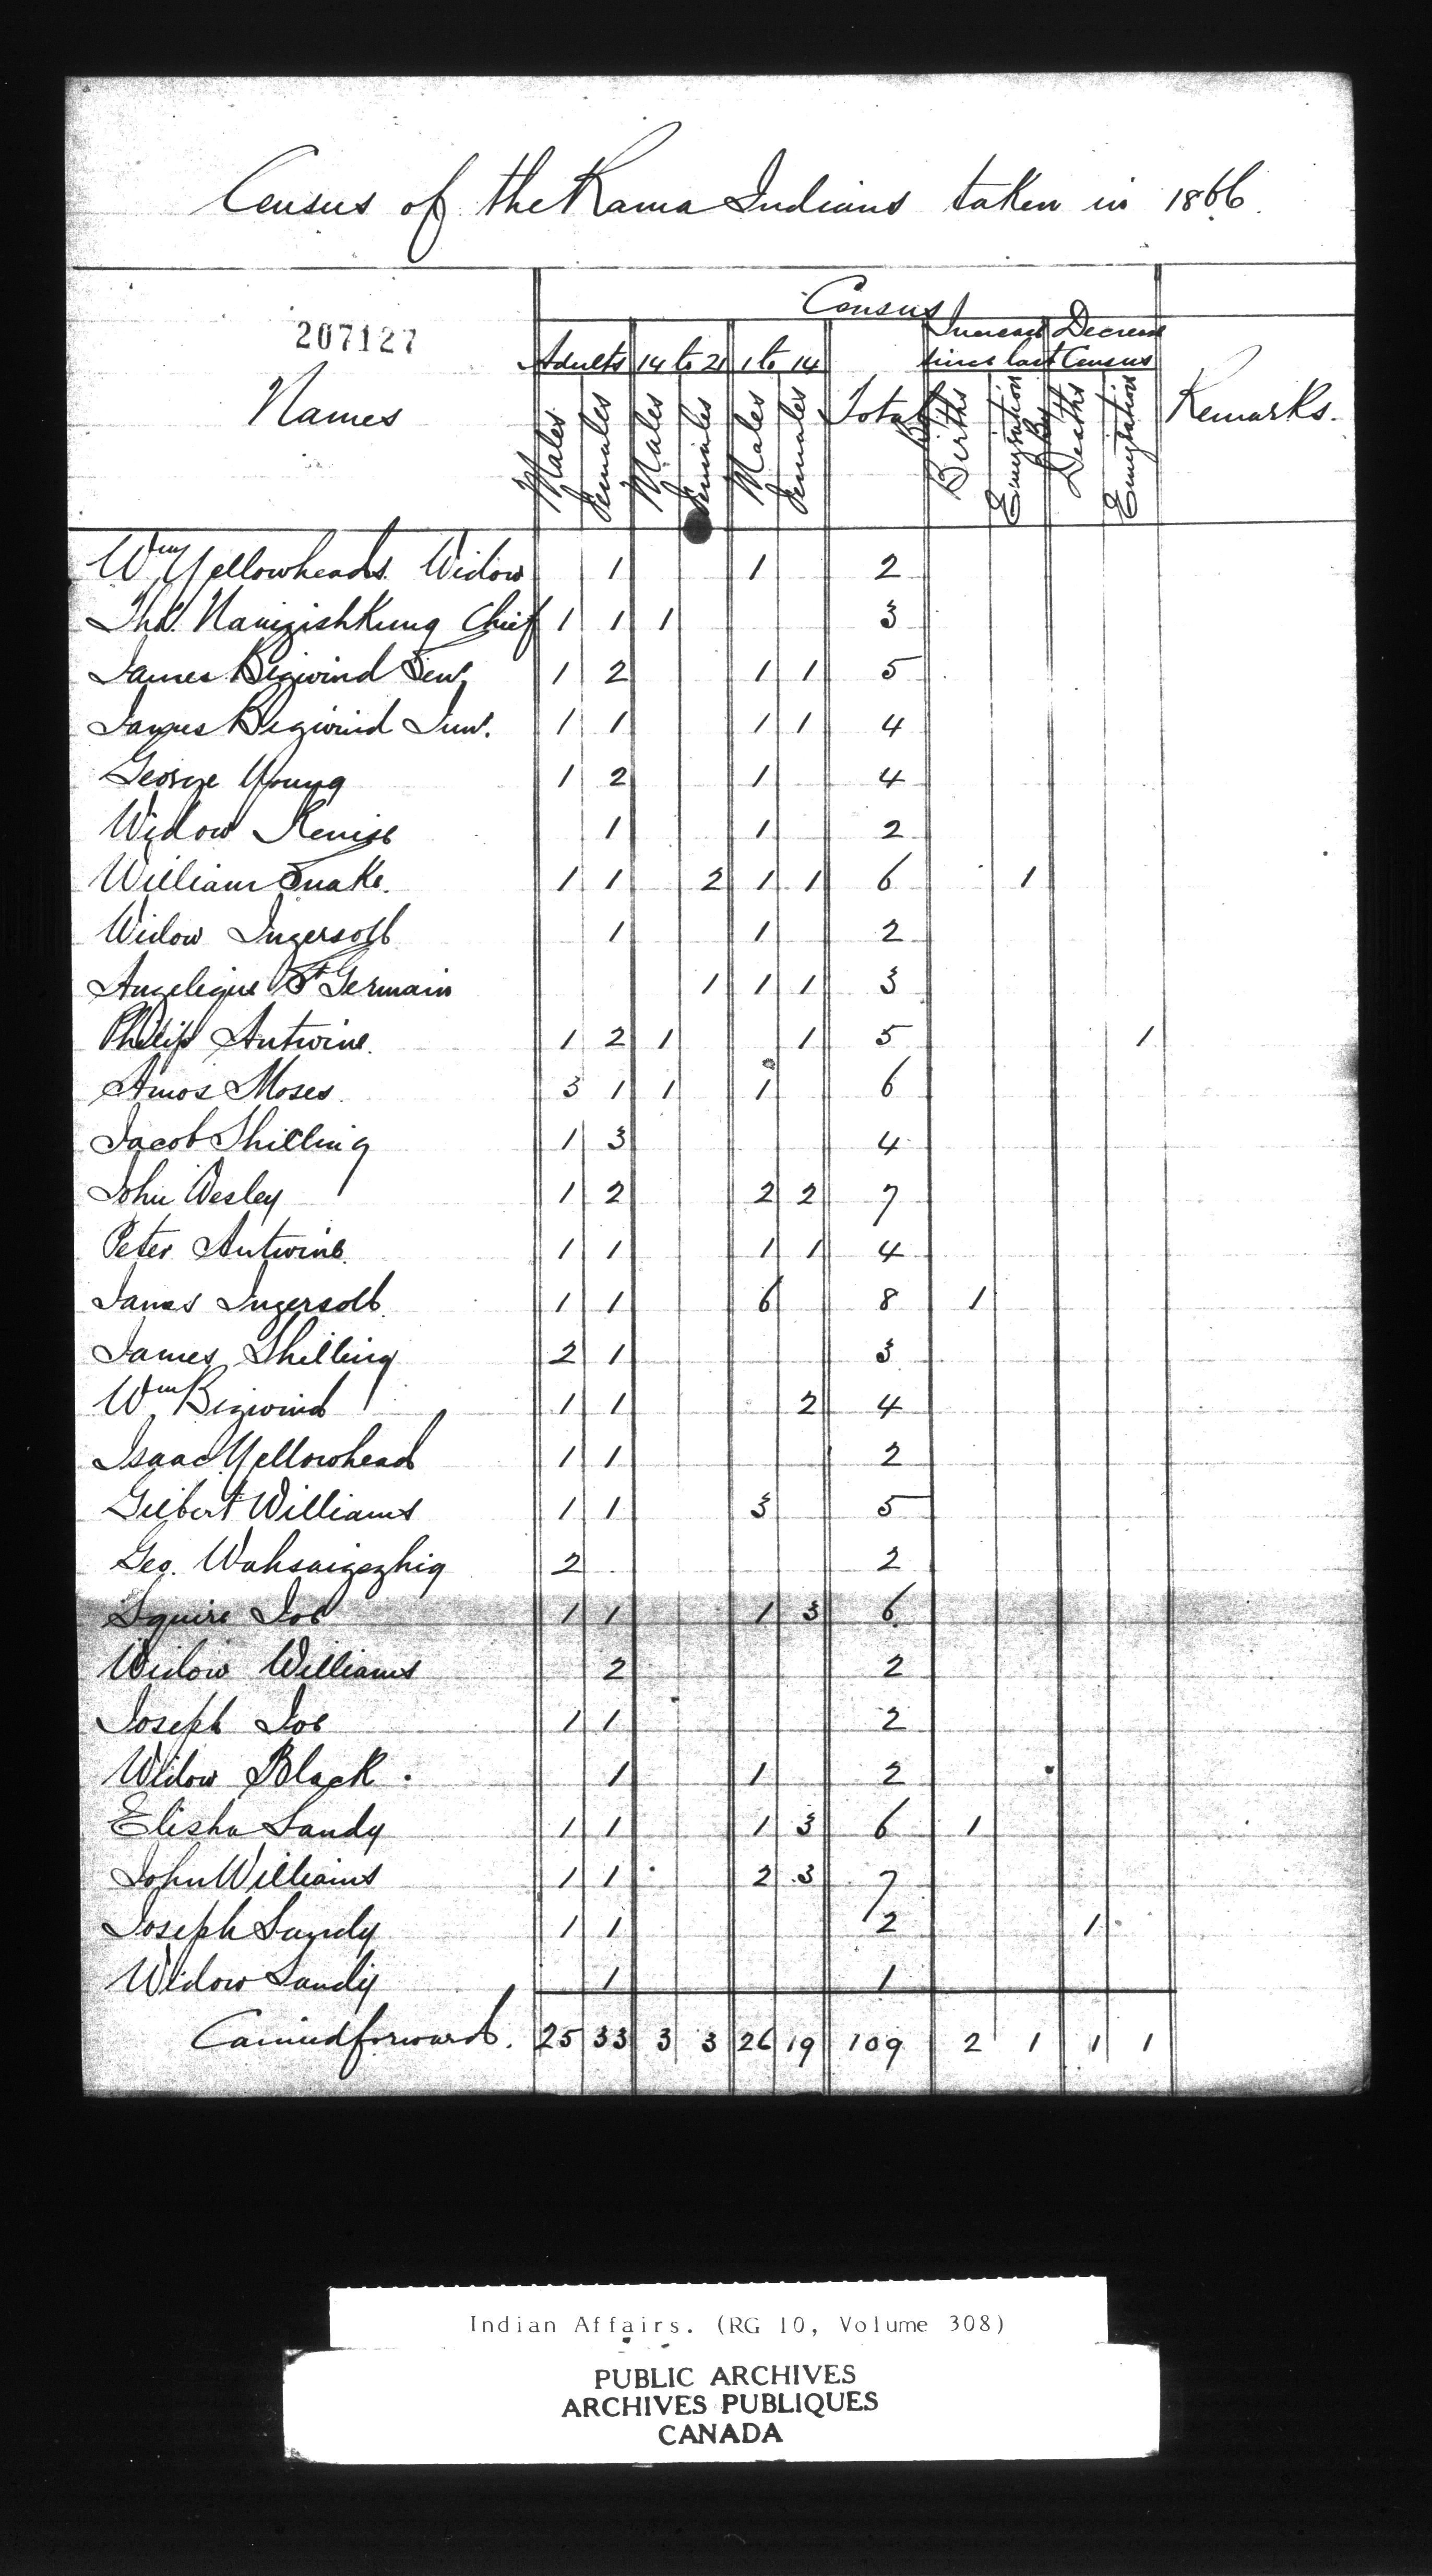 Census of the Rama Indians taken in 1866.
Census
207127
Increase Decrease
Adults 14 to 21 1 to 14 since last Census
Names Males Females Males Females Males Females Total By Births Emigration By Deaths Emigration Remarks.
Wm Yellowheads Widow 1 1 2
Thos. Naingishkung Chief 1 1 1 3
James Bigwind Senr. 1 2 1 1 5
James Bigwind Junr. 1 1 1 1 4
George Young 1 2 1 4
Widow Kenise 1 1 2
William Snake. 1 1 2 1 1 6 1
Widow Ingersoll 1 1 2
Angelique St Germain 1 1 1 3
Philip Antwine. 1 2 1 1 5 1
Amos Moses. 3 1 1 1 6
Jacob Shilling 1 3 4
John Wesley 1 2 2 2 7
Peter Antwine. 1 1 1 1 4
James Ingersoll. 1 1 6 8 1
James Shilling 2 1 3
Wm Bigwind 1 1 2 4
Isaac Yellowhead 1 1 2
Gilbert Williams 1 1 3 5
Geo. Wahsaigezhig 2 2
Squire Joe 1 1 1 3 6
Widow Williams 2 2
Joseph Joe 1 1 2
Widow Black. 1 1 2
Elisha Sandy 1 1 1 3 6 1
John Williams 1 1 2 3 7
Joseph Sandy 1 1 2 1
Widow Sandy 1 1
Carried forward. 25 33 3 3 26 19 109 2 1 1 1
Indian Affairs. (RG 10, Volume 308)
PUBLIC ARCHIVES
ARCHIVES PUBLIQUES
CANADA